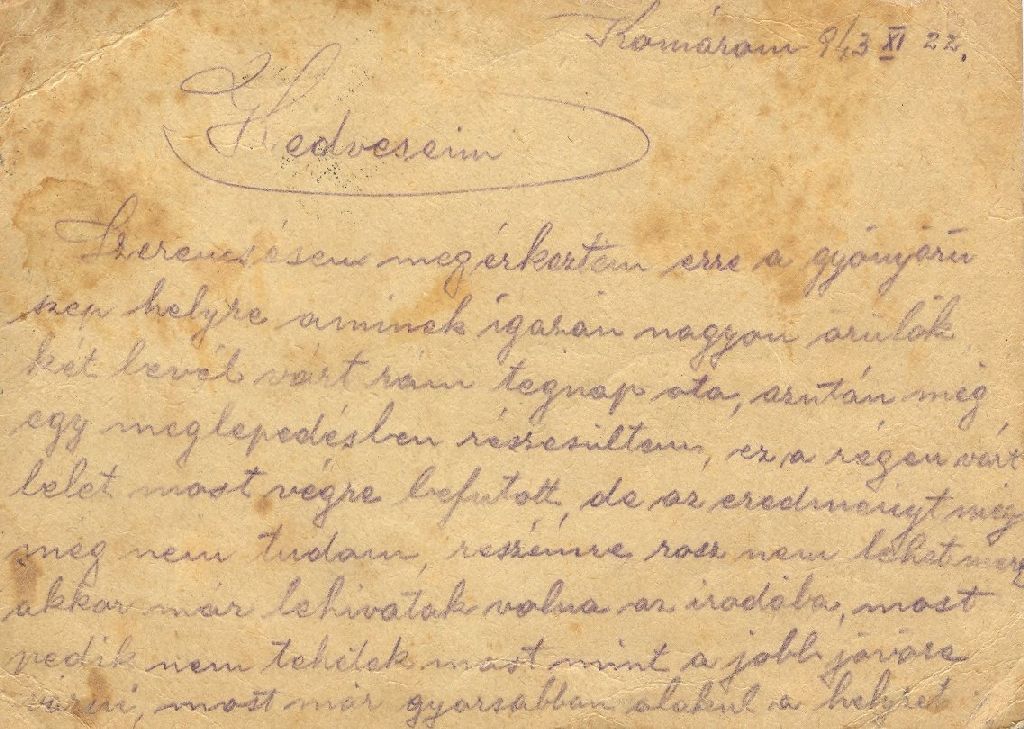 Komárom 943 XI 22.
Kedveseim
Szerencsésen megérkeztem erre a gyönyörü
szép helyre aminek igazán nagyon örülök
két levél várt rám tegnap ota, azután még
egy meglepedésben részesültem, ez a régen várt
lelet most végre befutott, de az eredményt még
meg nem tudom, reszémre rosz nem lehet mert
akkor már lehivatak volna az irodába, most
pedik nem tehetek mást mint a jobb jövöre
várni, most már gyorsabban alakul a helyzet